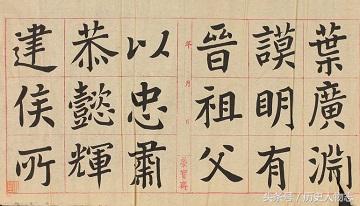 葉廣淵
謨明有
晉祖父
年 月 日
榮寶齋
以忠肅
恭懿輝
建侯所
头条号/历史人物志